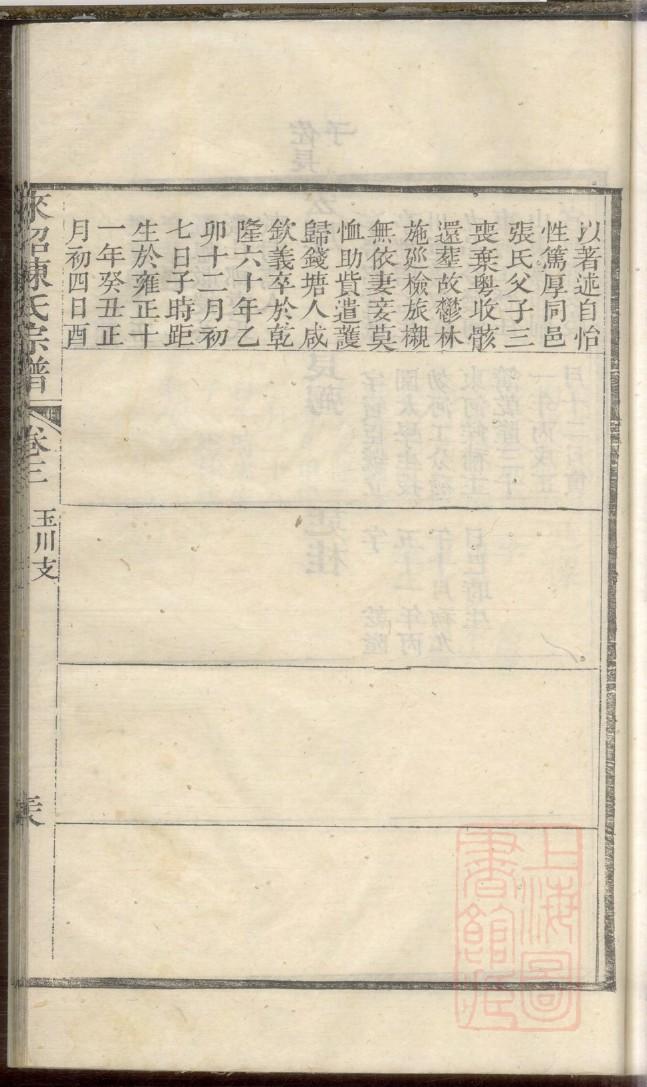 以著述自怡
性篤厚同邑
張氏父子三
喪棄𦥑收骸
還葬故鬱林
施廵檢旅櫬
無依妻妾莫
恤助貲遣護
歸錢塘人咸
欽義卒於乾
隆六十年乙
卯十二月初
七日子時距
生於雍正十
一年癸丑正
月初四日酉
陳氏宗譜
卷三
玉川支
上海圖
書館藏